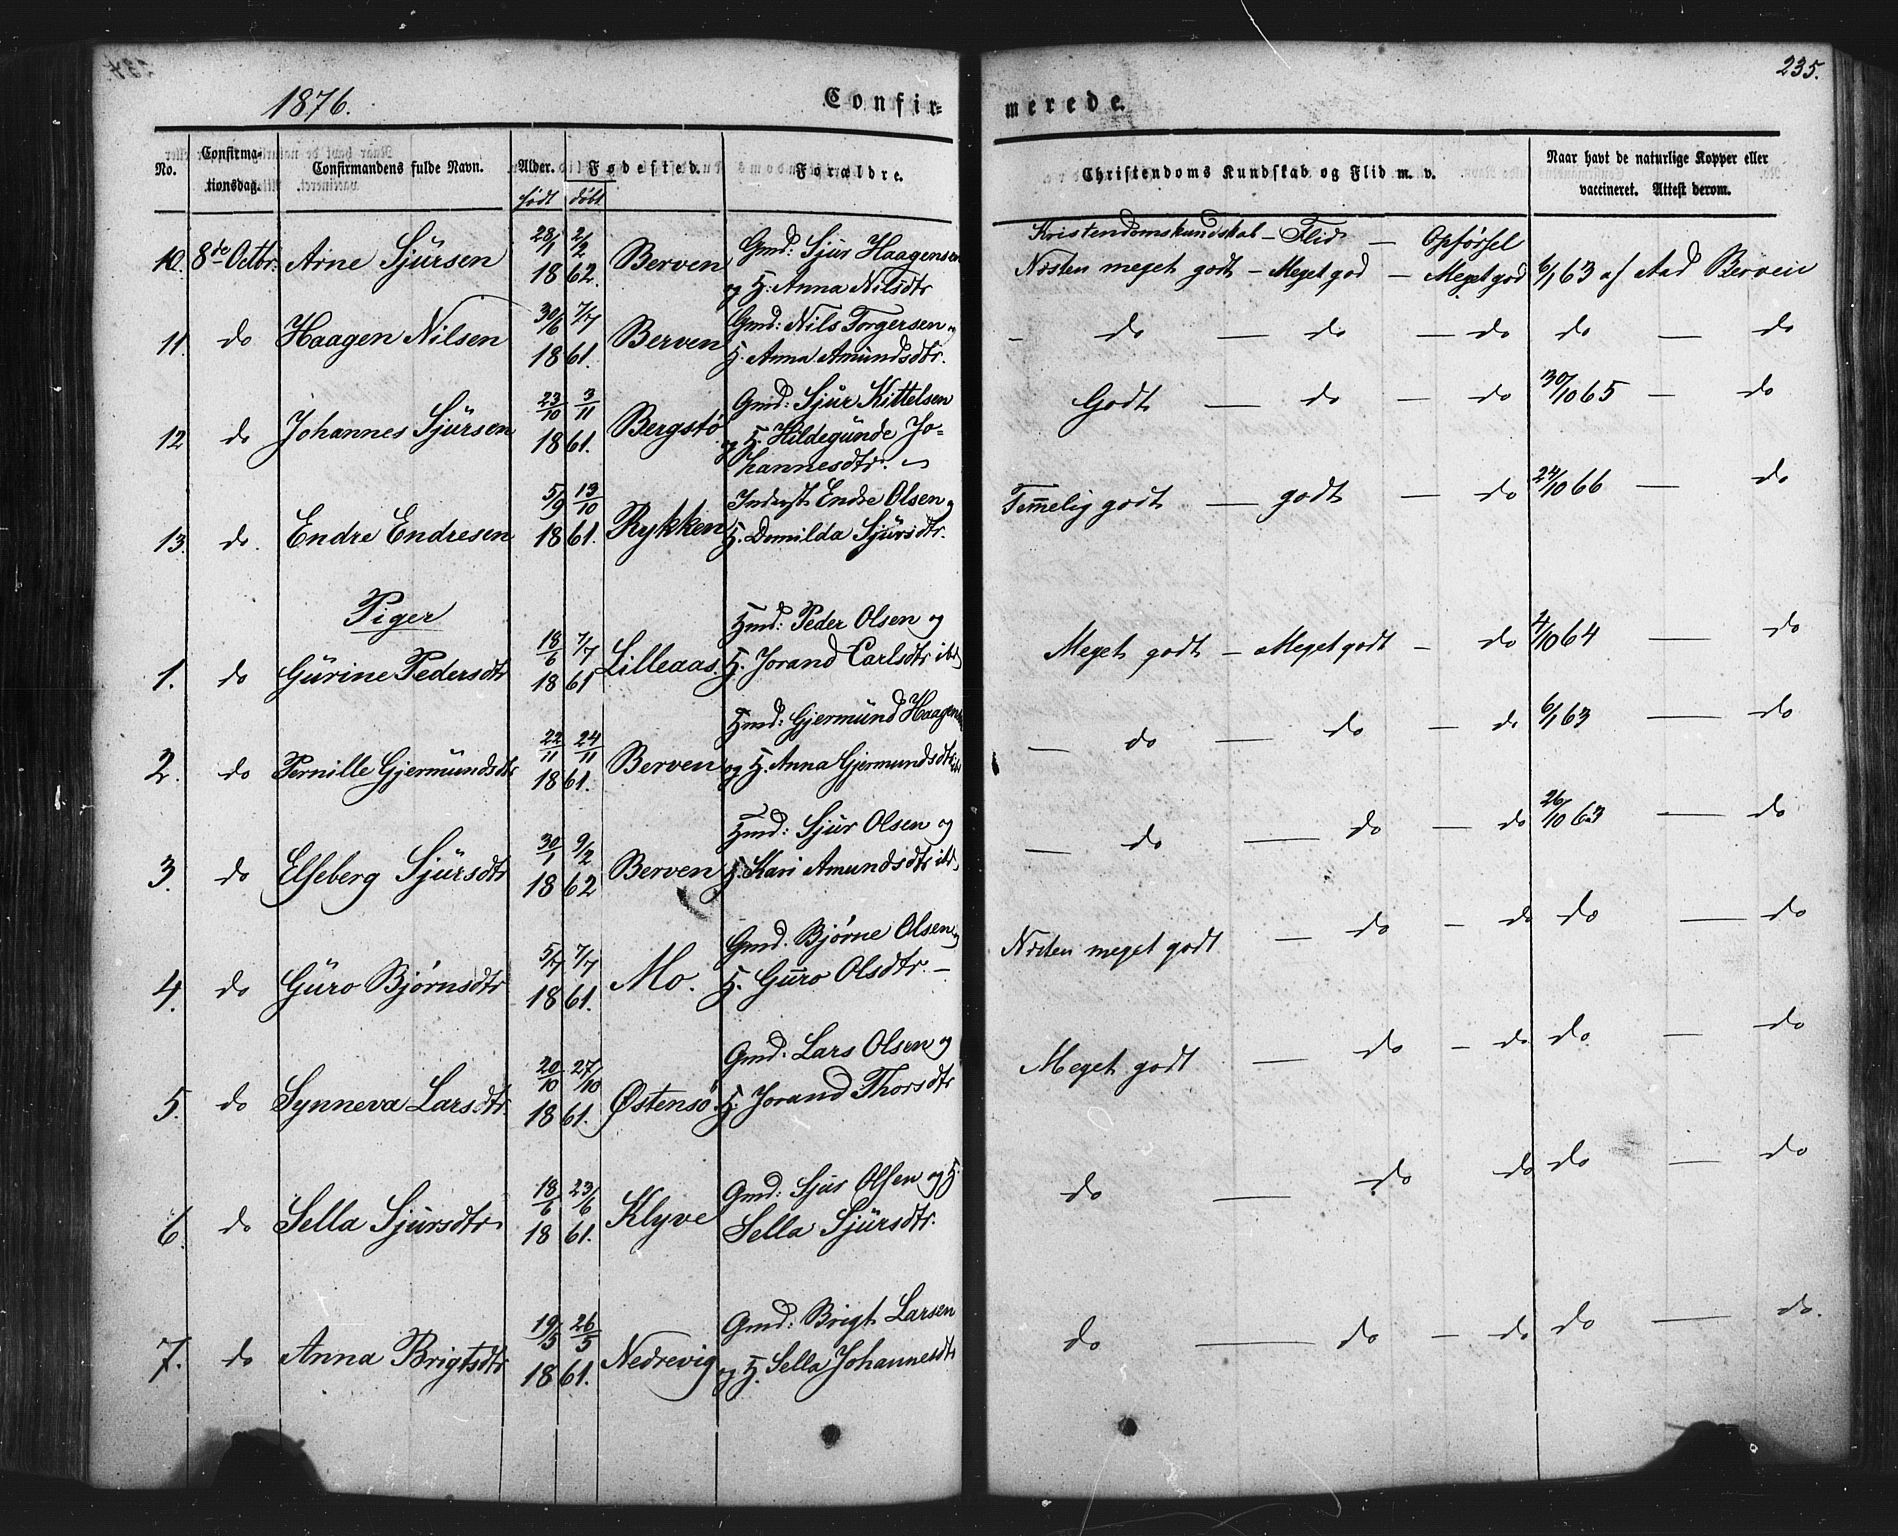 235.
1876. Confir-
merede.
No. Confirma-tionsdag. Confirmandens fulde Navn. Alder. Fødested. Forældre. Christendoms Kundskab og Flid m. v. Naar havt de naturlige Kopper eller vaccineret. Attest derom.
født døbt
Kristendomskundskab – Flid – Opførsel
10. 8de Octbr. Arne Sjursen 28/1 2/2 1862. Berven Gmd: Sjur Haagensen Næsten meget godt – Meget god – Meget god 6/1 63 af Aad Berven
og H: Anna Nilsdtr
11. do Haagen Nilsen 30/6 7/7 1861. Berven Gmd: Nils Torgersen og – do — do – do do — do
H. Anna Amundsdtr.
12 do Johannes Sjursen 23/10 3/11 1861. Bergstø Gmd: Sjur Kittelsen Godt — do – do 30/10 65 – do
og H. Hildegunde Jo-
hannesdtr. –
13. do. Endre Endresen 5/9 13/10 1861. Rykken Inderst Endre Olsen og Temmelig godt — godt — do 24/10 66 — do
H. Domilda Sjursdtr.
Piger
1. do Gurine Pedersdtr 18/6 7/7 1861 Lilleaas. Hmd: Peder Olsen og Meget godt – Meget godt – do 4/10 64 — do
H. Jorand Carlsdtr ibd
2. do Pernille Gjermundsdtr 22/11 24/11 1861. Berven Hmd: Gjermund Haagens — do — do – do 6/1 63 — do
og H. Anna Gjermundsdtr ibd
3. do Elseberg Sjursdtr 30/1 9/2 1862 Berven Hmd: Sjur Olsen og — do — do – do 26/10 63 — do
H. Kari Amundsdtr ibd.
4. do Guro Bjørnsdtr 5/7 7/7 1861. Mo. Gmd. Bjørne Olsen og Næsten meget godt — do – do do — do
H. Guro Olsdtr. –
5. do Synneva Larsdtr. 20/10 27/10 1861. Østensø Gmd. Lars Olsen og Meget godt — do – do do — do
H. Jorand Thorsdtr
6. do Sella Sjursdtr 18/6 23/6 1861. Klyve Gmd: Sjur Olsen og H. do — do do do — do
Sella Sjursdtr.
7. do Anna Brigtsdtr 19/5 26/5 1861. Nedrevig Gmd: Brigt Larsen do — do – do do — do.
og H. Sella Johannesdtr